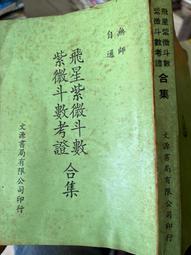 無師
自通
飛星紫微斗數
紫微斗數考證
合集
文源書局有限公司印行
飛星紫微斗數
紫微斗數考證
合集
文源書局有限公司印行